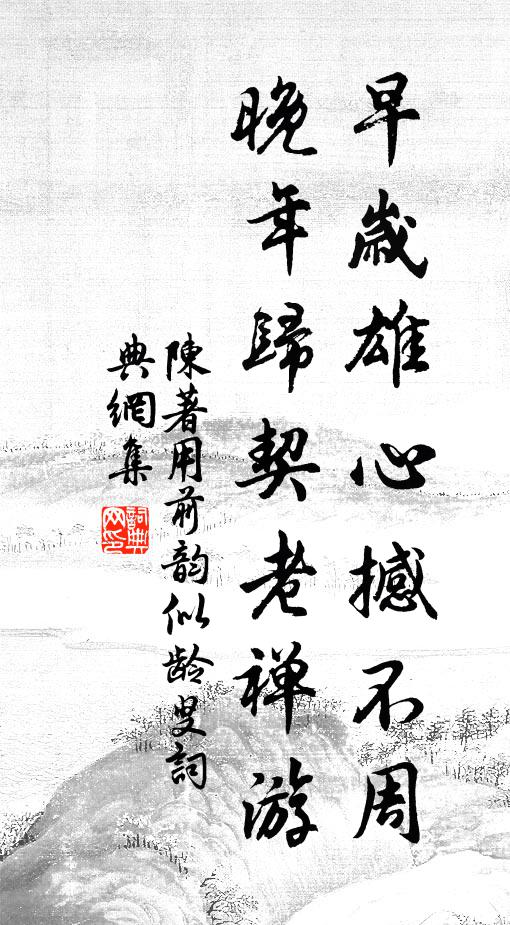 早歲雄心撼不周
晚年歸契老禅游
陳著用前韵似龄叟詞
典網集
詞典網印